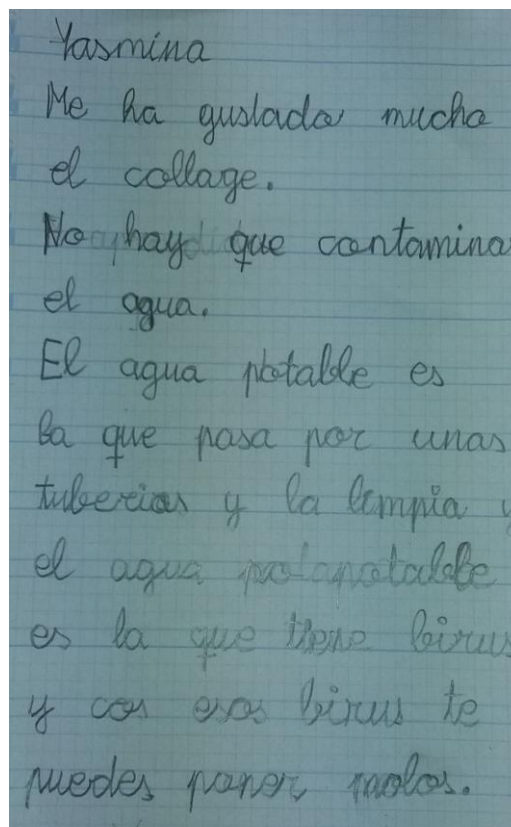 Yasmina
Me ha gustado mucho
el collage.
No hay que contamina
el agua.
El agua potable es
la que pasa por unas
tuberias y la limpia y
el agua potable
es la que tiene birus
y con esos birus te
puedes poner malos.